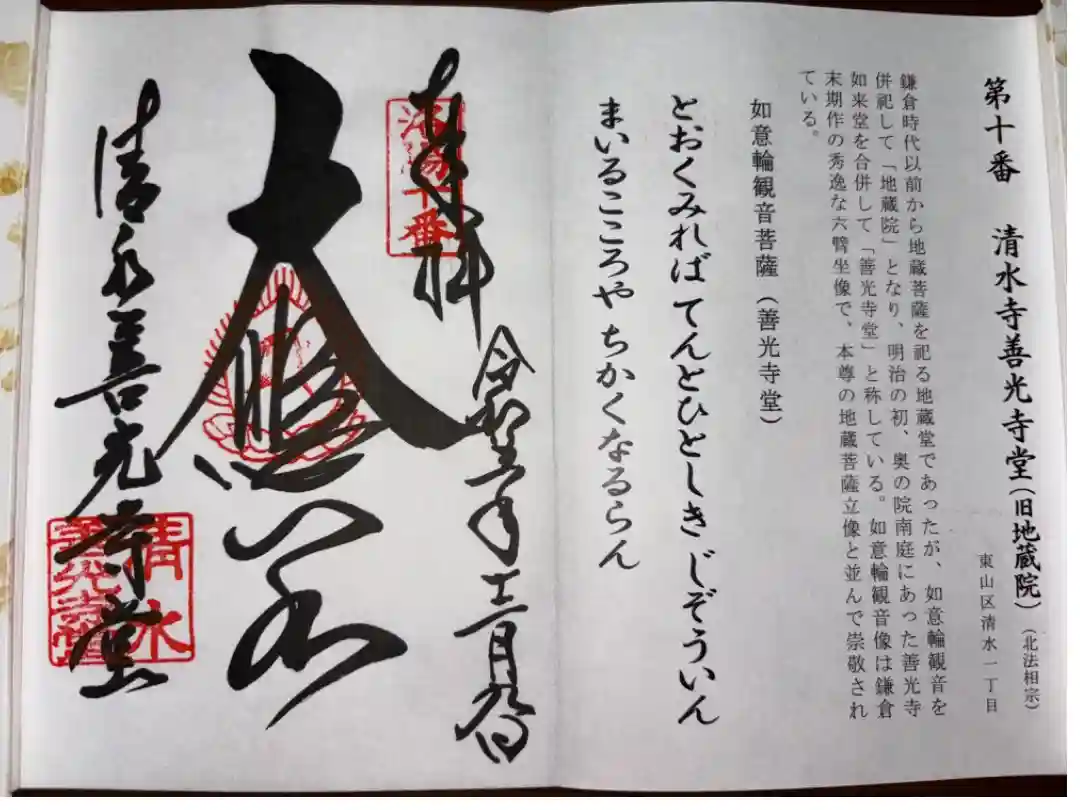 第十番 清水寺善光寺堂(旧地蔵院)(北法相宗)
東山区清水一丁目
鎌倉時代以前から地蔵菩薩を祀る地蔵堂であったが、如意輪観音を
併祀して「地蔵院」となり、明治の初、奥の院南庭にあった善光寺
如来堂を合併して「善光寺堂」と称している。如意輪観音像は鎌倉
末期作の秀逸な六臂坐像で、本尊の地蔵菩薩立像と並んで崇敬され
ている。
如意輪観音菩薩(善光寺堂)
とおくみれば てんとひとしき じぞういん
まいるこころや ちかくなるらん
奉拝
洛陽十番
令和三年十二月九日
大悲殿
清水善光寺堂
清水
善光寺堂